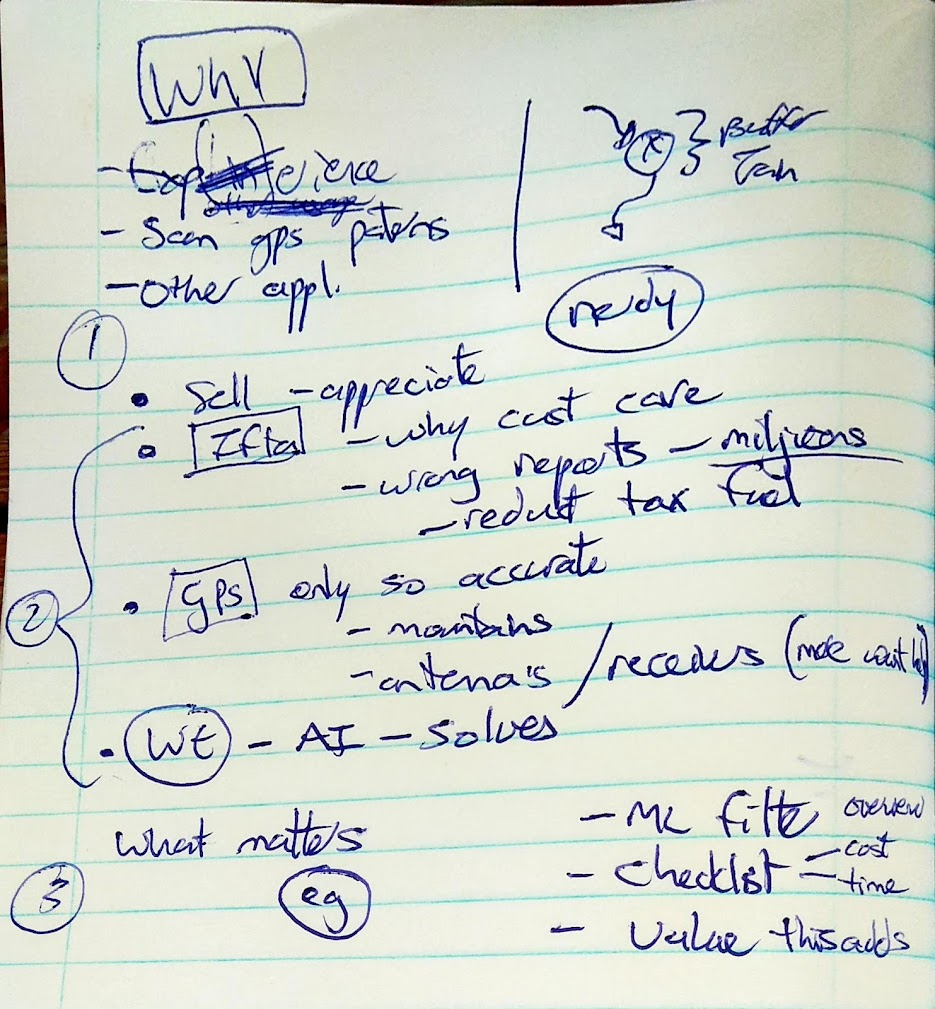 Why
- Experience
- Scan gps patens
- Other appl.
X
nerdy
1
• Sell - appreciate
• Ifta - why cust care
- wrong reports - miljions
- reduct tax fuel
2
• GPS only so accurate
- mountains
- antena's / recevers (more
• WE - AI - solves
what matters
3
eg
- ML filte overview
- Checklist - cost
- time
- Value this adds